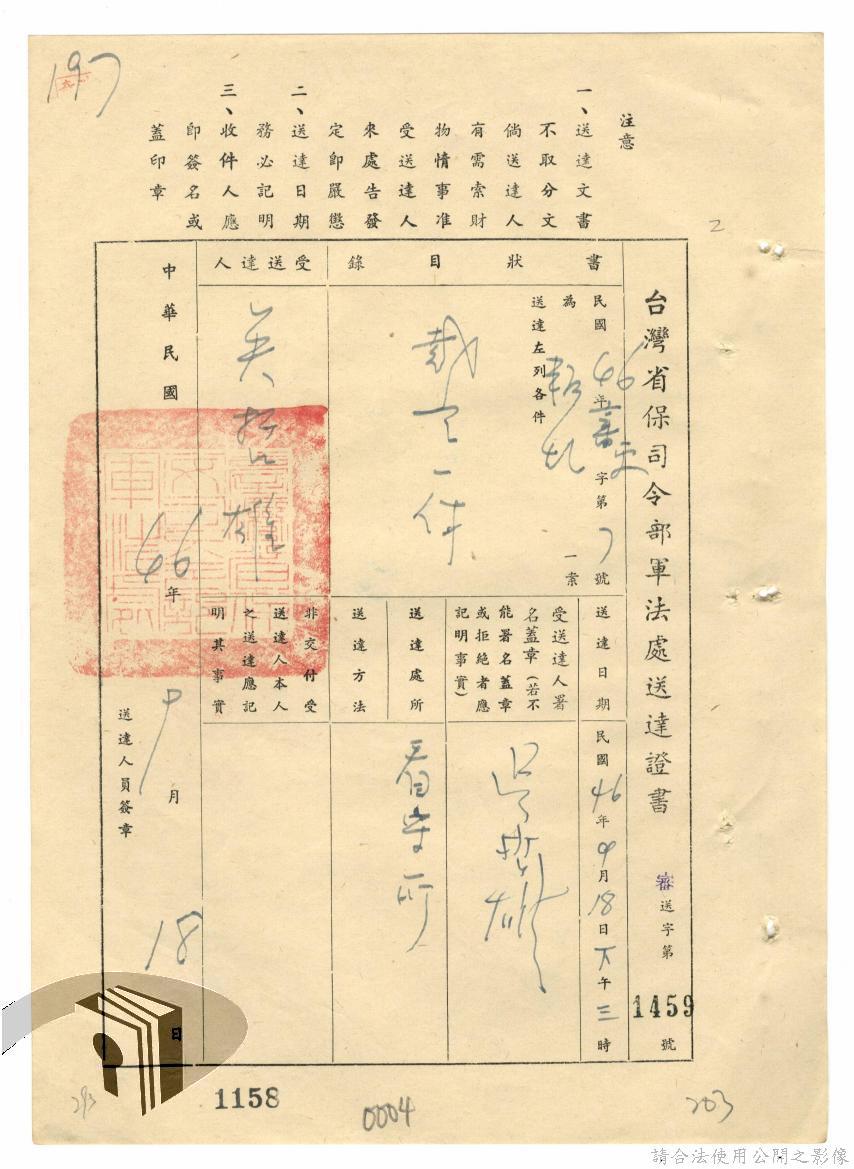 197
注意
一、送達文書
不取分文
倘送達人
有需索財
物情事准
受送達人
來處告發
定即嚴懲
二、送達日期
務必記明
三、收件人應
即簽名或
蓋印章
2
台灣省保司令部軍法處送達證書 審送字第1459號
書狀目錄
民國46年審更字第7號
為叛亂一案
送達左列各件
裁定一件
受送達人
吳哲雄
送達日期
民國46年9月18日下午三時
受送達人署
名蓋章(若不
能署名蓋章
或拒絕者應
記明事實)
吳哲雄
送達處所
看守所
送達方法
非交付受
送達人本人
之送達應記
明其事實
中華民國46年9月18日
送達人員簽章
293
1158
0004
203
請合法使用公開之影像